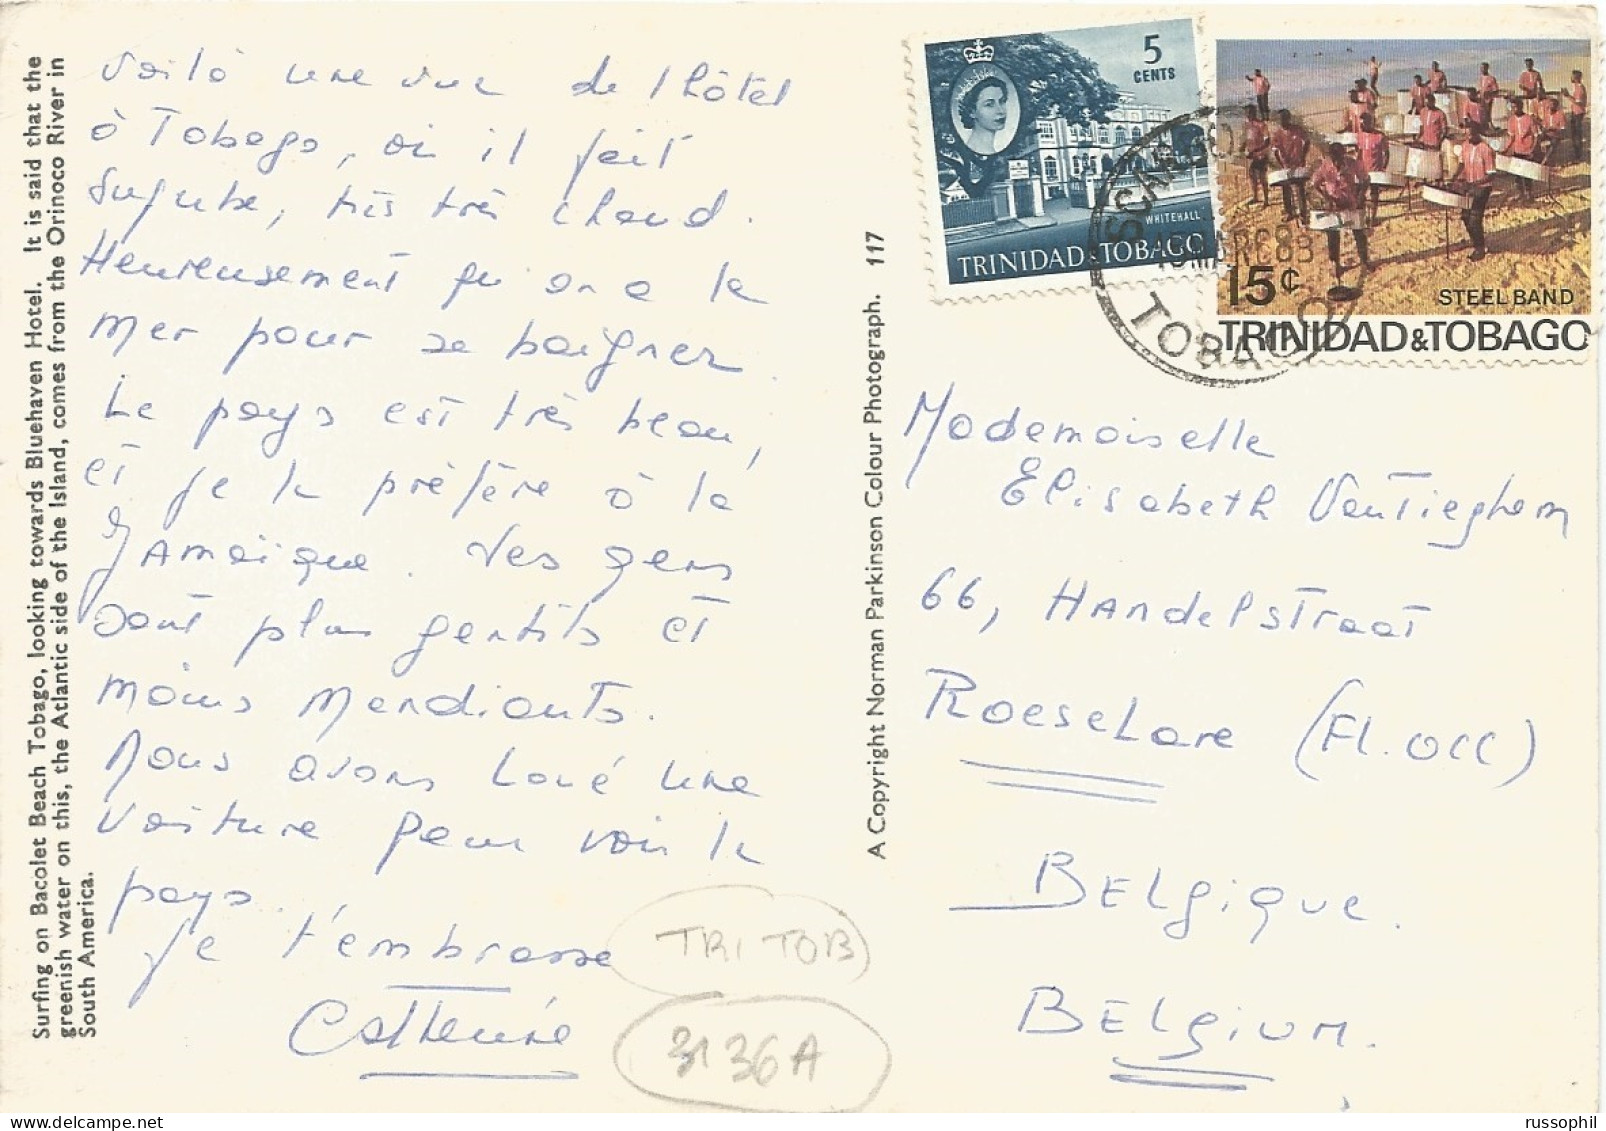 Voilà une vue de l'hôtel
à Tobago, où il fait
superbe, très très chaud.
Heureusement qu'on a la
mer pour se baigner.
Le pays est très beau,
et je le préfère à la
Jamaïque. Les gens
sont plus gentils et
moins mendiants.
Nous avons loué une
voiture pour voir le
pays.
Je t'embrasse
Catherine
TRI TOB
3136A
Surfing on Bacolet Beach Tobago, looking towards Bluehaven Hotel. It is said that the
greenish water on this, the Atlantic side of the Island, comes from the Orinoco River in
South America.
A Copyright Norman Parkinson Colour Photograph. 117
5
CENTS
WHITEHALL
TRINIDAD & TOBAGO
15¢
STEEL BAND
TRINIDAD & TOBAGO
SCARBOROUGH
MAR 85
TOBAGO
Mademoiselle
Elisabeth VanTieghem
66, Handelstraat
Roeselare (Fl. occ)
Belgique.
Belgium.
www.russophil.com